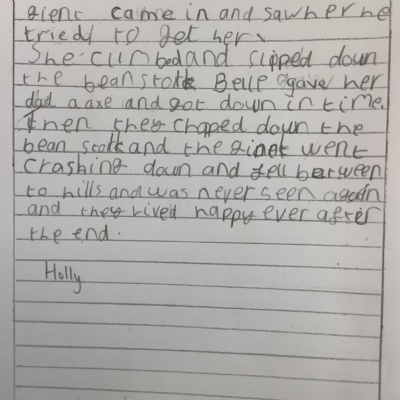 gient came in and saw her he
tried to get her.
She climbed and slipped down
the beanstolk Belle gave her
dad a axe and got down in time.
Then they chopped down the
bean stolk and the gient went
crashing down and fell between
to hills and was never seen again
and they lived happy ever after
the end.
Holly